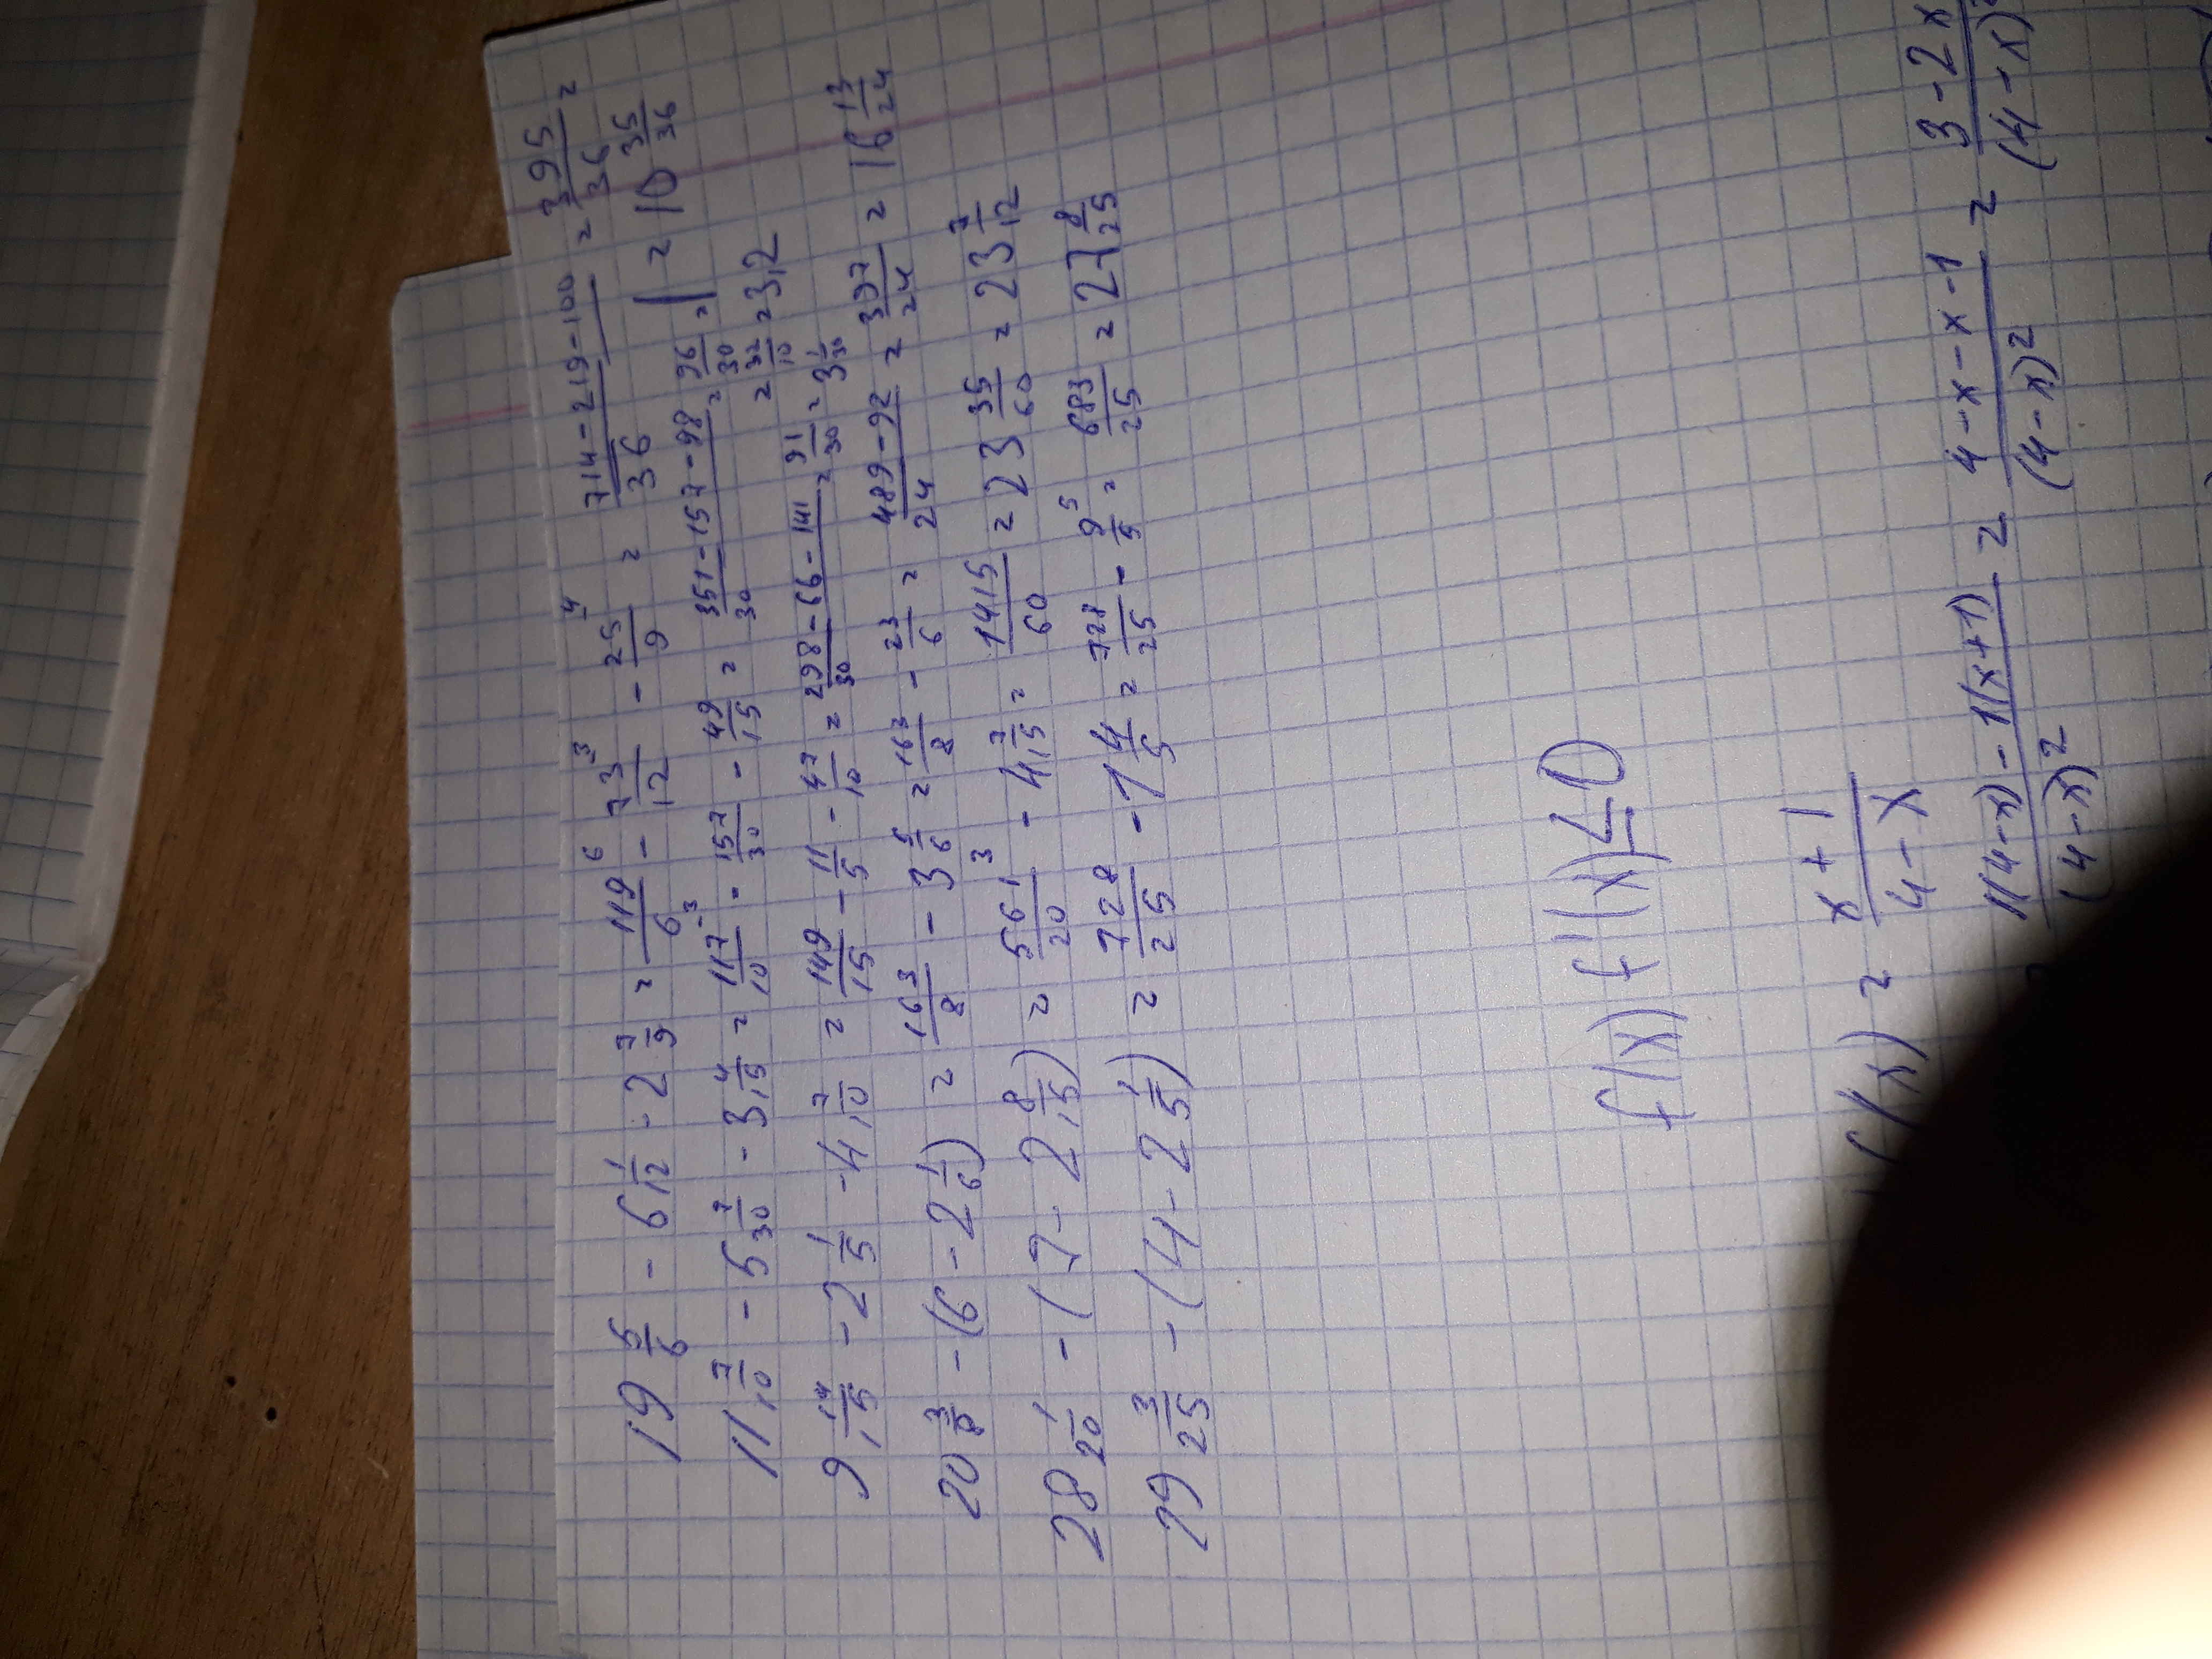 19 5/6 - 6 1/12 - 2 7/9 = 119/6 ⁶ - 73/12 ³ - 25/9 ⁴ = (714-219-100)/36 = 395/36 =
= 10 35/36
11 7/10 - 5 7/30 - 3 4/15 = 117/10 ³ - 157/30 - 49/15 = (351-157-98)/30 = 96/30 =
= 32/10 = 3,2
9 14/15 - 2 1/5 - 4 7/10 = 149/15 - 11/5 - 47/10 = (298-66-141)/30 = 91/30 = 3 1/30
20 3/8 - (6 - 2 1/6) = 163/8 - 3 5/6 = 163/8 - 23/6 = (489-92)/24 = 397/24 = 16 13/24
28 1/20 - (7 - 2 8/15) = 561/20 ³ - 4 7/15 = 1415/60 = 23 35/60 = 23 7/12
29 3/25 - (4 - 2 1/5) = 728/25 - 1 4/5 = 728/25 - 9/5 ⁵ = 683/25 = 27 8/25
f(x) f'(x) ≤ 0
f(x) = (x+1)/(4-x)
(1(4-x) - 1(x+1))/(4-x)² = (4-x-x-1)/(4-x)² = (3-2x)/(4-x)²